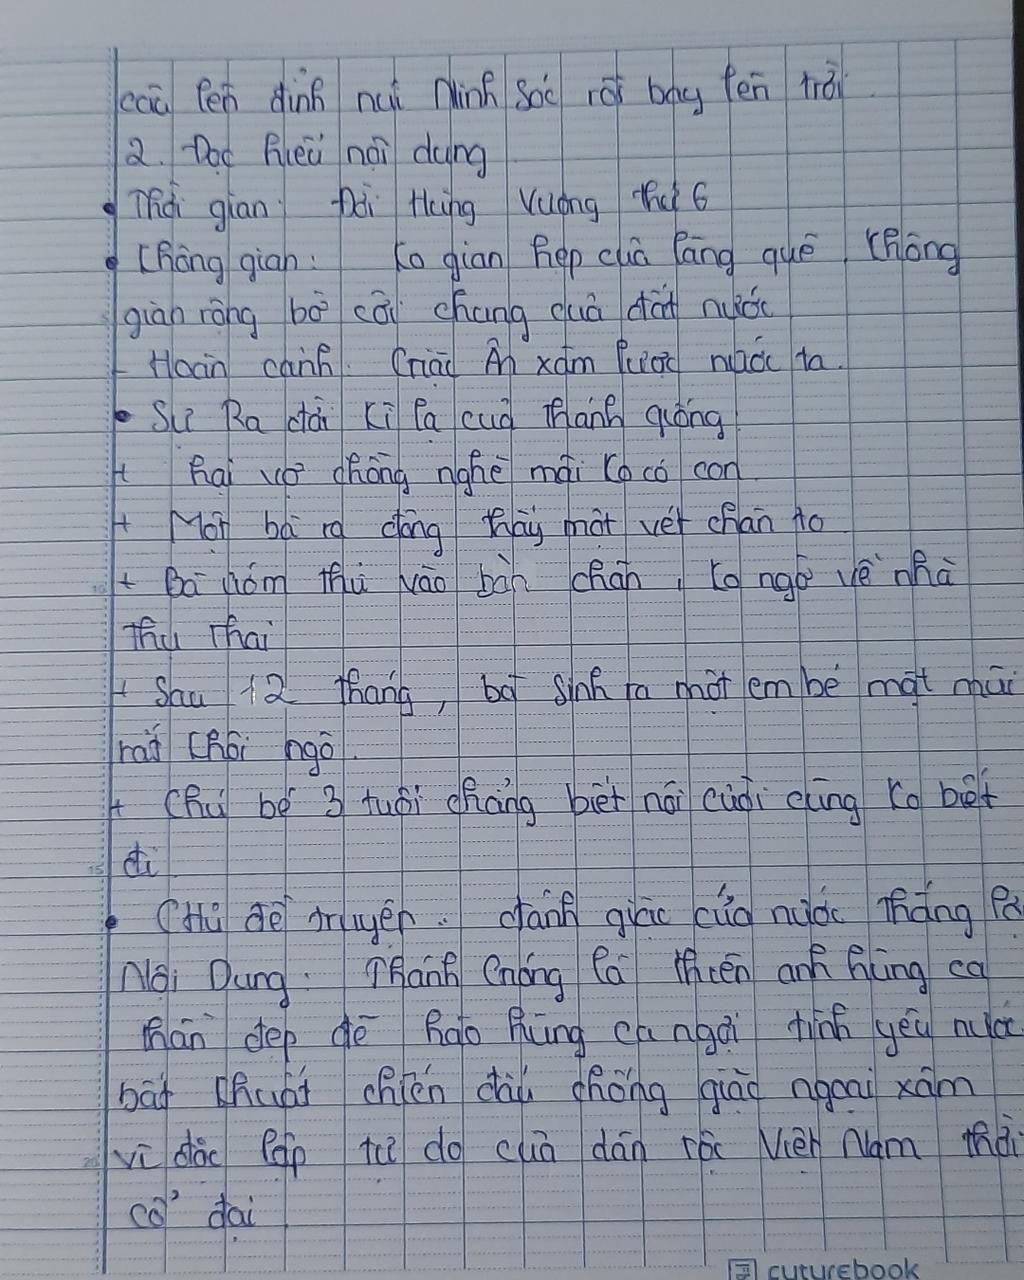 cầu lên đỉnh núi Ninh Sóc rồi bay lên trời
2. Đọc hiểu nội dung
• Thời gian: Đời Hùng Vương thứ 6
• Không gian: Ko gian hẹp của làng quê, không
gian rộng bờ cõi chung quả đất nước
- Hoàn cảnh: Giặc Ân xâm lược nước ta.
• Sự Ra đời kì lạ của Thánh gióng
+ hai vợ chồng nghè mãi ko có con
+ Một bà ra đồng thấy một vết chân to
+ Bà ướm thử vào bàn chân, ko ngờ về nhà
thụ thai
+ Sau 12 tháng, bà sinh ra một em bé mặt mũi
rất khôi ngô.
+ Chú bé 3 tuổi chẳng biết nói cười cũng ko biết
đi
• Chủ đề truyện: đánh giặc cứu nước thắng lợi
Nội Dung: Thánh Gióng là thiên anh hùng ca
thần đẹp đẽ hào hùng ca ngợi tình yêu nước
bất khuất chiến đấu chống giặc ngoại xâm
vì độc lập tự do của dân tộc Việt Nam thời
cổ đại
futurebook